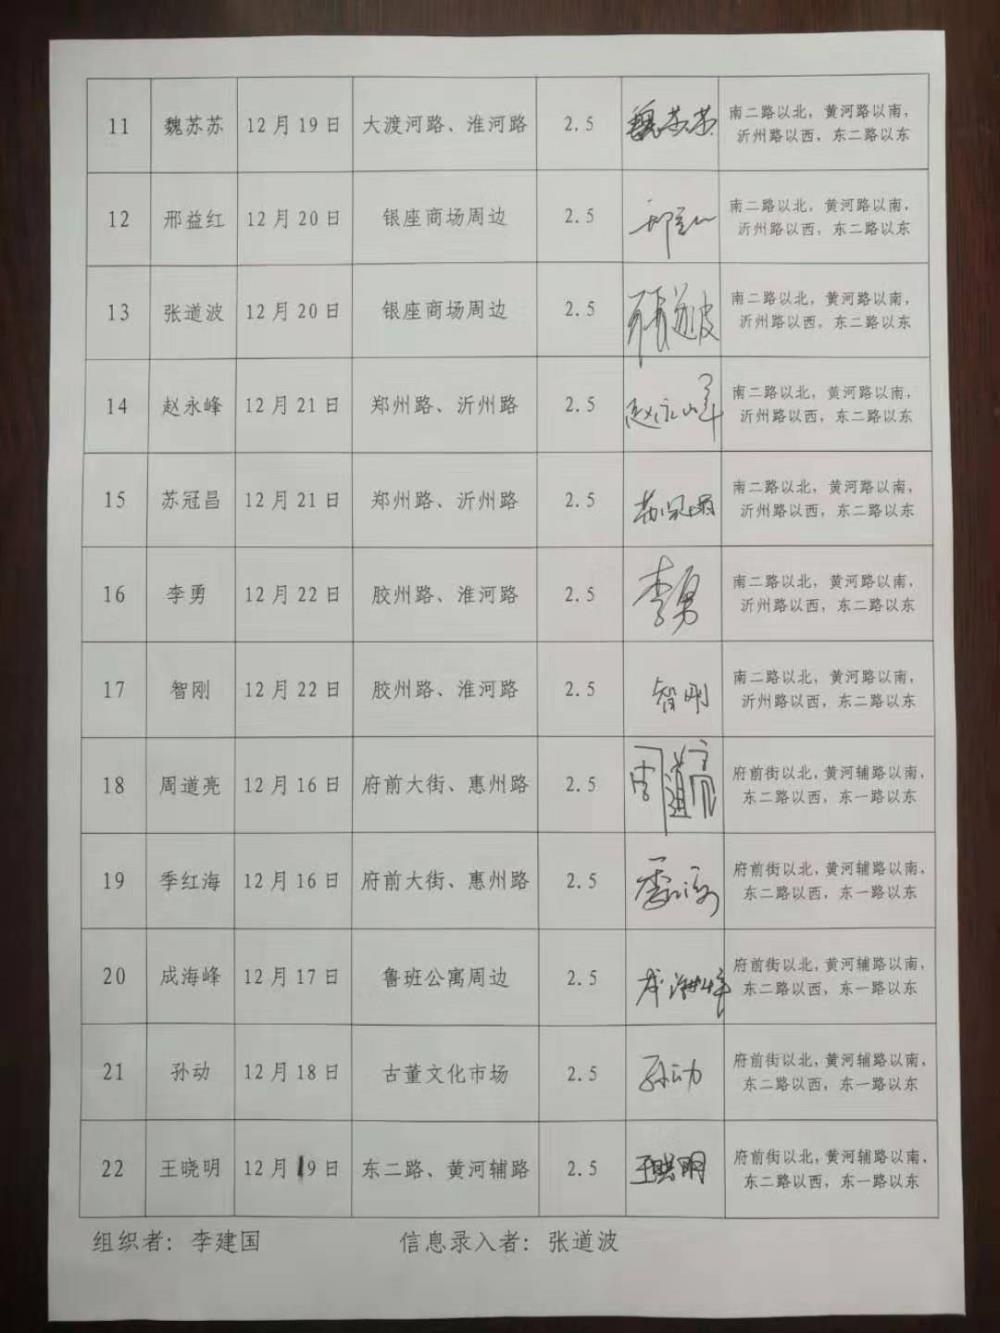 11 魏苏苏 12月19日 大渡河路、淮河路 2.5 魏苏苏 南二路以北，黄河路以南，
沂州路以西，东二路以东
12 邢益红 12月20日 银座商场周边 2.5 南二路以北，黄河路以南，
沂州路以西，东二路以东
13 张道波 12月20日 银座商场周边 2.5 張道波 南二路以北，黄河路以南，
沂州路以西，东二路以东
14 赵永峰 12月21日 郑州路、沂州路 2.5 赵永峰 南二路以北，黄河路以南，
沂州路以西，东二路以东
15 苏冠昌 12月21日 郑州路、沂州路 2.5 苏冠昌 南二路以北，黄河路以南，
沂州路以西，东二路以东
16 李勇 12月22日 胶州路、淮河路 2.5 李勇 南二路以北，黄河路以南，
沂州路以西，东二路以东
17 智刚 12月22日 胶州路、淮河路 2.5 智刚 南二路以北，黄河路以南，
沂州路以西，东二路以东
18 周道亮 12月16日 府前大街、惠州路 2.5 周道亮 府前街以北，黄河辅路以南，
东二路以西，东一路以东
19 季红海 12月16日 府前大街、惠州路 2.5 季红海 府前街以北，黄河辅路以南，
东二路以西，东一路以东
20 成海峰 12月17日 鲁班公寓周边 2.5 成海峰 府前街以北，黄河辅路以南，
东二路以西，东一路以东
21 孙动 12月18日 古董文化市场 2.5 孙动 府前街以北，黄河辅路以南，
东二路以西，东一路以东
22 王晓明 12月19日 东二路、黄河辅路 2.5 王晓明 府前街以北，黄河辅路以南，
东二路以西，东一路以东
组织者：李建国 信息录入者：张道波